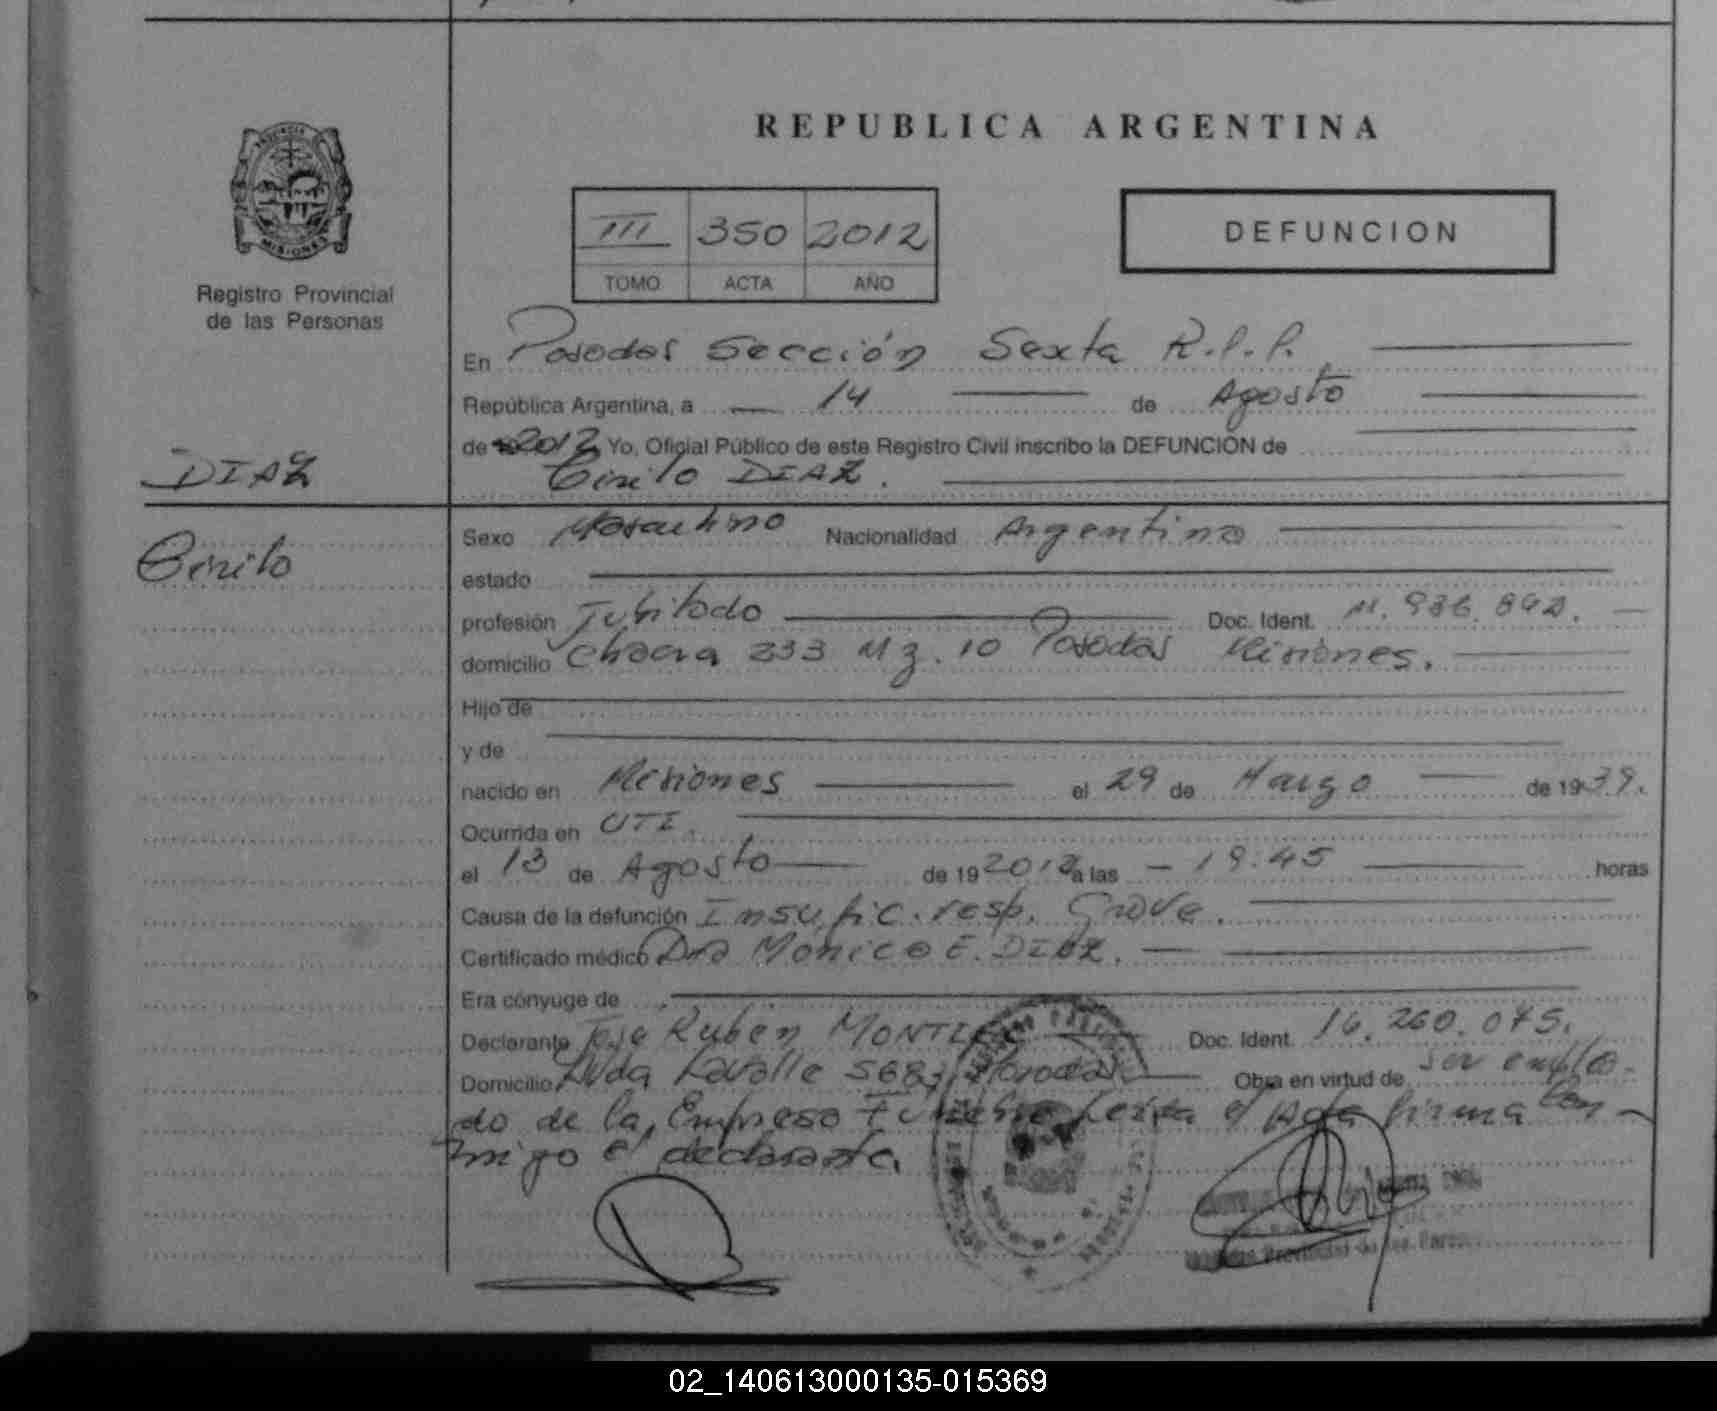 REPUBLICA ARGENTINA
PROVINCIA
MISIONES
Registro Provincial
de las Personas
III 350 2012
TOMO ACTA AÑO
DEFUNCION
En Posadas Sección Sexta R.P.P.
República Argentina, a 14 de Agosto
de 2012 Yo, Oficial Público de este Registro Civil inscribo la DEFUNCION de
DIAZ
Cirilo DIAZ.
Cirilo
Sexo Masculino Nacionalidad Argentina
estado
profesión Jubilado Doc. Ident. M.
domicilio Chacra 233 Mz. 10 Posadas Misiones.
Hijo de
y de
nacido en Misiones el 29 de Marzo de 1939.
Ocurrida en UTI.
el 13 de Agosto de 19 2012 a las 19:45 horas
Causa de la defunción Insufic. resp. Grave.
Certificado médico Dra Monica E. DIAZ.
Era cónyuge de
Declarante José Ruben Doc. Ident. 16.260.075.
Domicilio Avda Lavalle 5683 Posadas Obra en virtud de ser emplea-
do de la Empresa Funebre el Acta firma con-
migo el declarante
Provincial de las
02_140613000135-015369